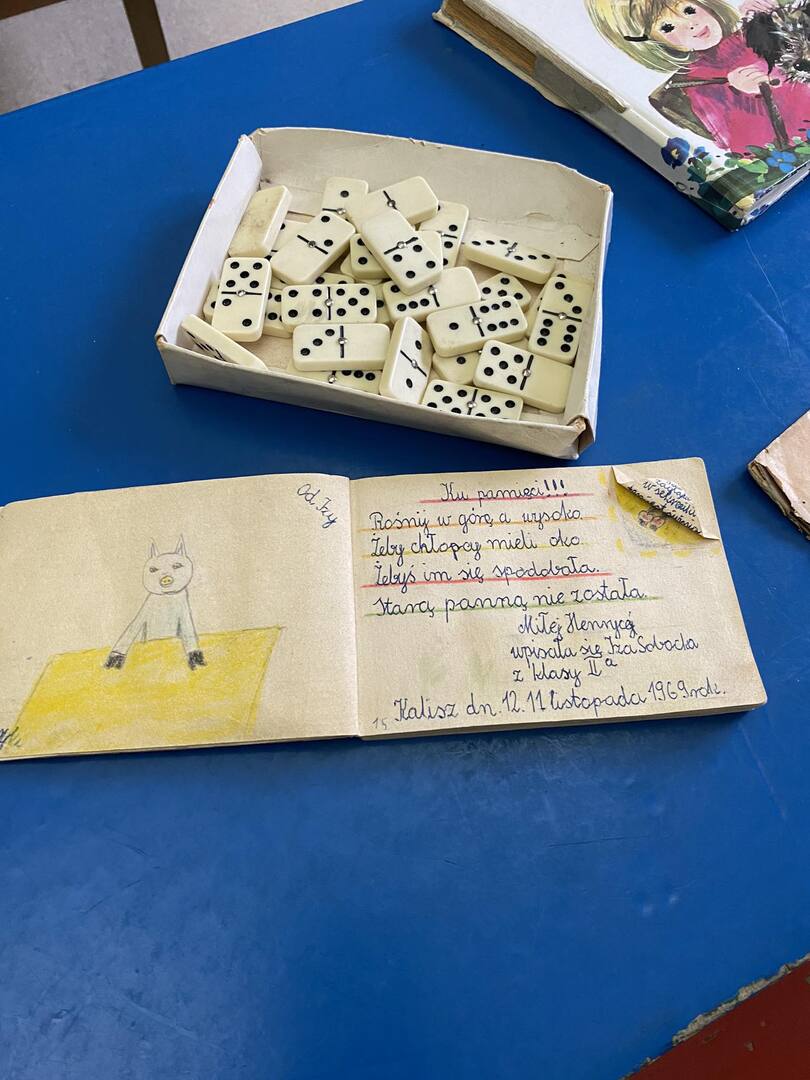 Od Izy
Ku pamięci!!!
Rośnij w górę a wysoko.
Żeby chłopcy mieli oko
Żebyś im się spodobała.
Starą panną nie została.
Miłej Henrycę
wpisała się Iza Sobocka
z klasy II a
15 Kalisz dn. 12.11 listopada 1969 rok.